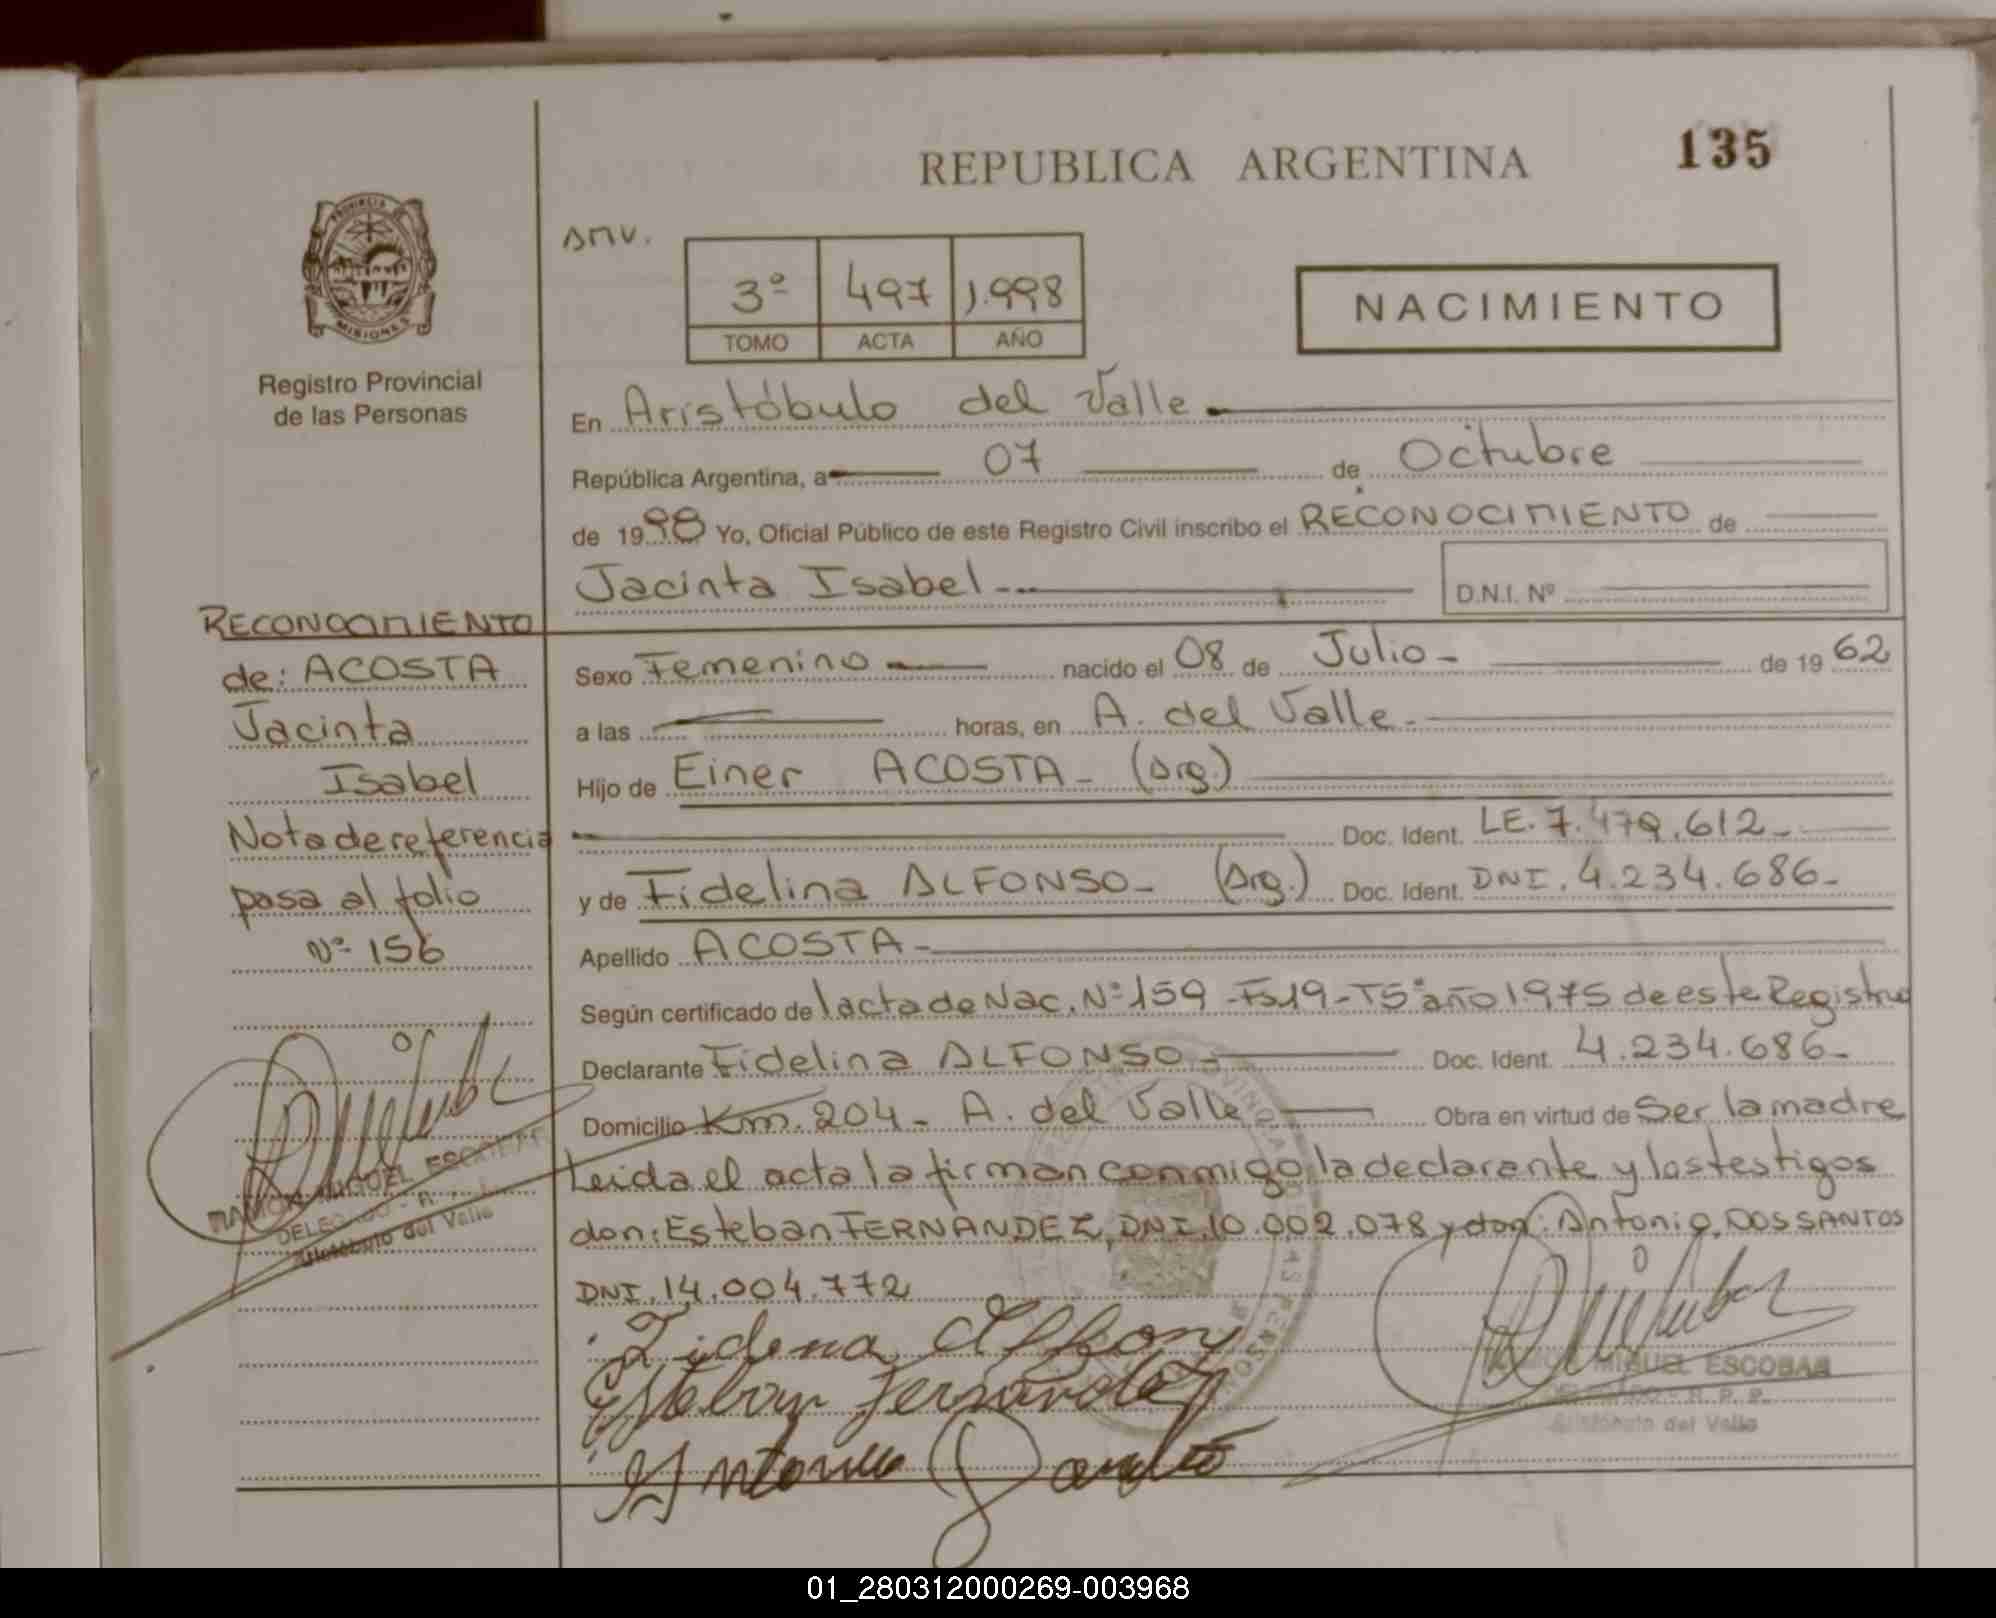 135
REPUBLICA ARGENTINA
PROVINCIA DE
MISIONES
Registro Provincial
de las Personas
AMV.
3º 497 1.998
TOMO ACTA AÑO
NACIMIENTO
En Aristóbulo del Valle
República Argentina, a 07 de Octubre
de 1998 Yo, Oficial Público de este Registro Civil inscribo el RECONOCIMIENTO de
Jacinta Isabel
D.N.I. Nº
RECONOCIMIENTO
de: ACOSTA
Jacinta
Isabel
Nota de referencia
pasa al folio
Nº 156
Sexo Femenino nacido el 08 de Julio - de 1962
a las horas, en A. del Valle.
Hijo de Einer ACOSTA - (Arg.)
Doc. Ident. LE. 7.479.612-
y de Fidelina ALFONSO - (Arg.) Doc. Ident. DNI. 4.234.686-
Apellido ACOSTA -
Según certificado de l acta de Nac. Nº 159 - Fs 19 - T5º año 1975 de este Registro
Declarante Fidelina ALFONSO - Doc. Ident. 4.234.686-
Domicilio Km. 204 - A. del Valle Obra en virtud de Ser la madre
Leida el acta la firman conmigo la declarante y los testigos
don: Esteban FERNANDEZ, DNI. 10.002.078 y don: Antonio DOS SANTOS
DNI. 14.004.772
Esteban Fernandez
RAMON MIGUEL ESCOBAR
DELEGADO - R. P. P.
Aristóbulo del Valle
RAMON MIGUEL ESCOBAR
DELEGADO - R. P. P.
Aristóbulo del Valle
01_280312000269-003968